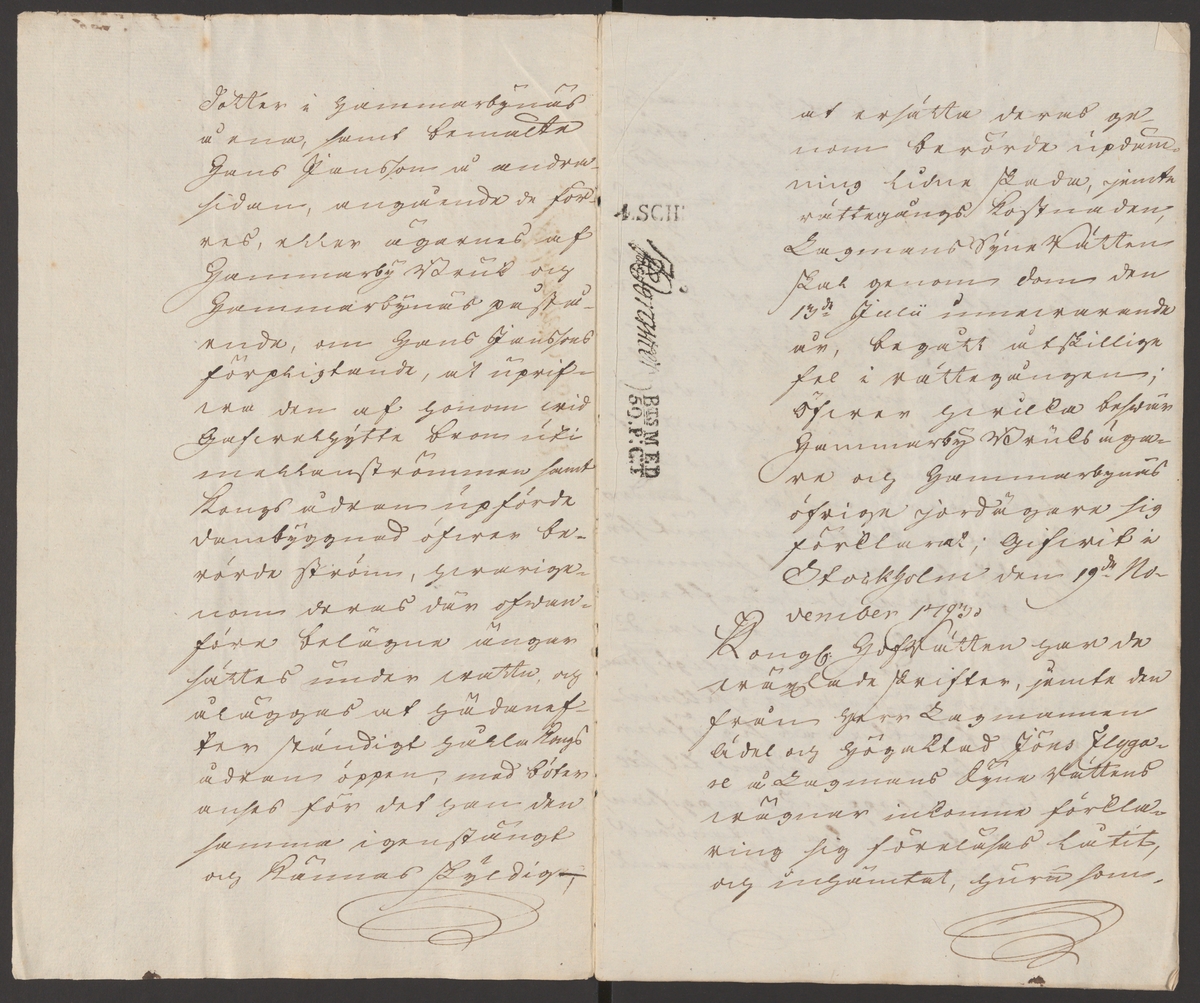 Totter i Hammarbynäs
å ena, samt bemälte
Hans Jansson å andra
sidan, angående de för-
res, eller ägarnes af
Hammarby Bruk och
Hammarbynäs påstå-
ende, om Hans Janssons
förpligtande, at uprif-
wa den af honom wid
Gafwelhytte bron uti
mellanströmmen samt
Kongs ådran upförde
dambyggnad öfwer be-
rörde ström, hwarige-
nom deras där ofwan-
före belägne ängar
sättes under wattn, och
åläggas at hädanef-
ter ständigt hålla Kongs
ådran öppen, med böter
anses för det han den
samma igenstängt
och kännas skyldig,
at ersätta deras ge-
nom berörde updäm-
ning lidne skada, jemte
rättegångs kostnaden,
Lagmans Syne Rätten
skal genom dom den
13de Julii innewarande
år, begått åtskillige
fel i rättegången;
Öfwer hwilka beswär
Hammarby Bruks äga-
re och Hammarbynäs
öfrige jordägare sig
förklarat; Gifwit i
Stockholm den 19de No-
vember 1793.
Kongl. HofRätten har de
wäxlade skrifter, jemte den
från Herr Lagmannen
Ädel och Högaktad Jöns Flyga-
re å Lagmans Syne Rättens
wägnar inkomne förkla-
ring sig föreläsas låtit,
och inhämtat, huru som